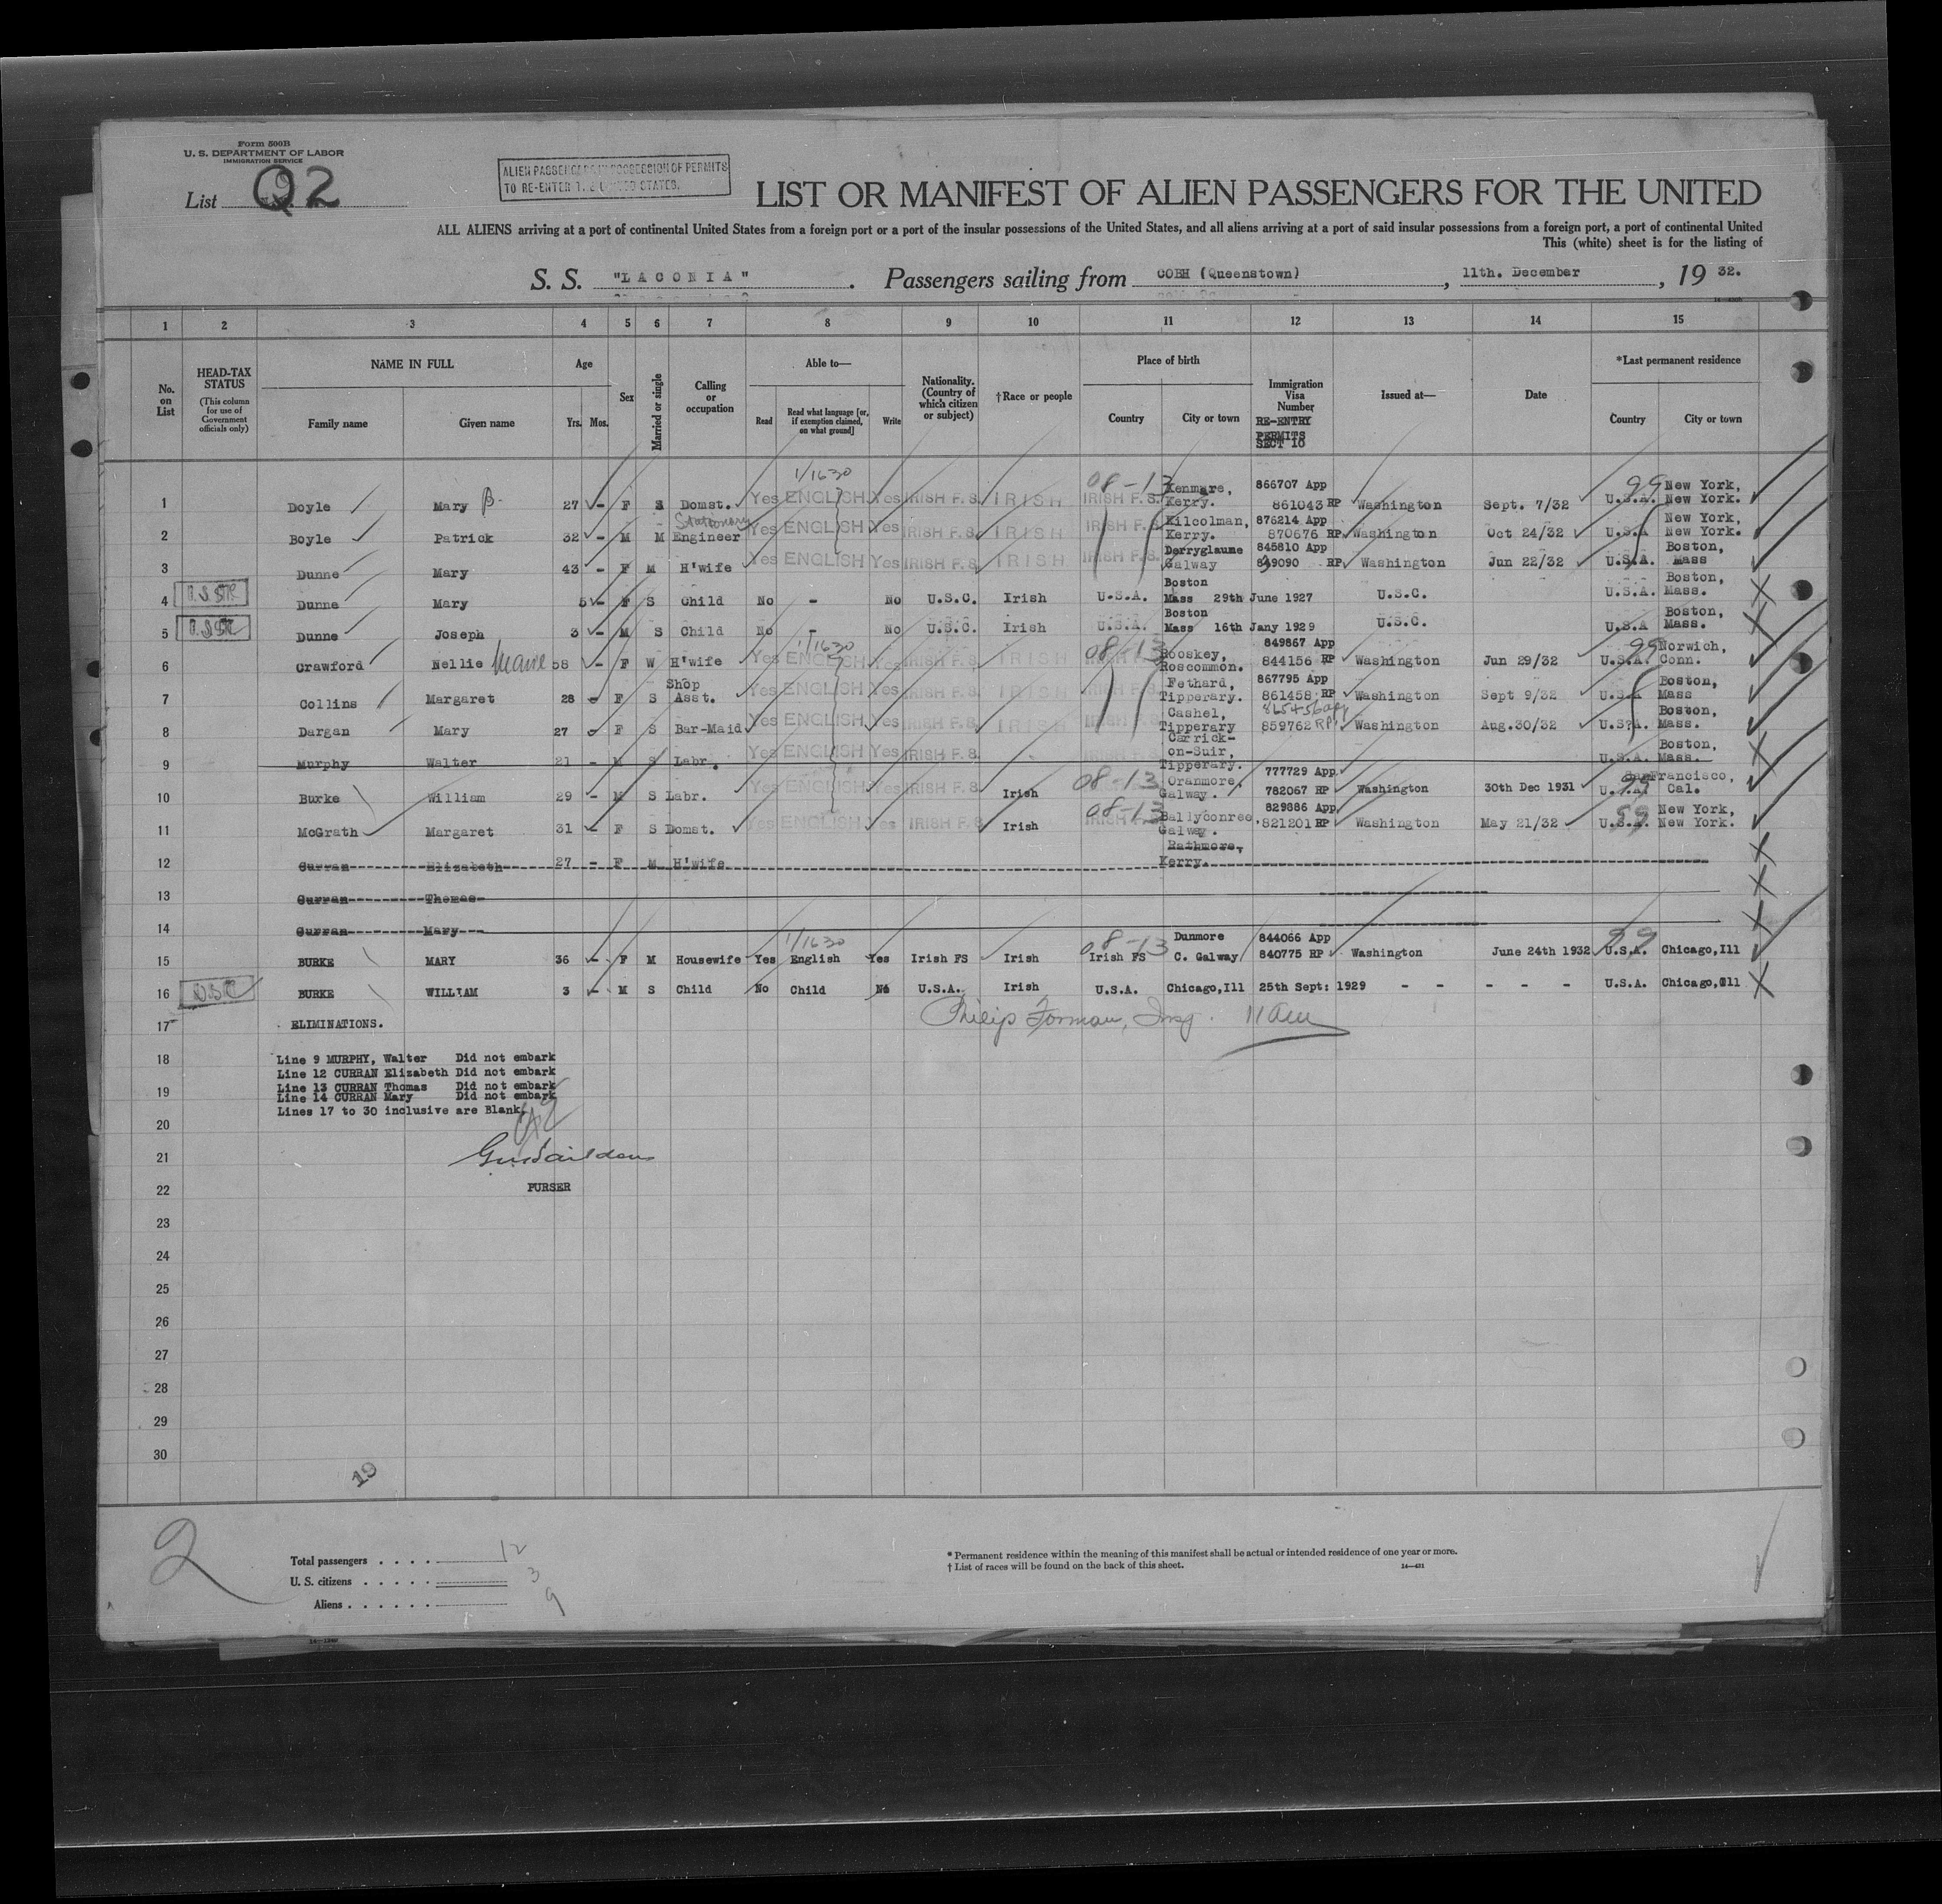 Form 500B
U. S. DEPARTMENT OF LABOR
IMMIGRATION SERVICE
List Q2
ALIEN PASSENGERS IN POSSESSION OF PERMITS
TO RE-ENTER THE UNITED STATES.
LIST OR MANIFEST OF ALIEN PASSENGERS FOR THE UNITED
ALL ALIENS arriving at a port of continental United States from a foreign port or a port of the insular possessions of the United States, and all aliens arriving at a port of said insular possessions from a foreign port, a port of continental United
This (white) sheet is for the listing of
S. S. "LACONIA". Passengers sailing from COBH (Queenstown), 11th. December, 19 32.
1 2 3 4 5 6 7 8 9 10 11 12 13 14 15
No. on List
HEAD-TAX STATUS
(This column for use of Government officials only)
NAME IN FULL
Family name Given name
Age
Yrs. Mos.
Sex
Married or single
Calling or occupation
Able to—
Read Read what language [or, if exemption claimed, on what ground] Write
Nationality. (Country of which citizen or subject)
†Race or people
Place of birth
Country City or town
Immigration Visa Number
RE-ENTRY PERMITS SECT 10
Issued at—
Date
*Last permanent residence
Country City or town
1/1630 08-13 99
1 Doyle Mary B- 27 - F S Domst. Yes ENGLISH Yes IRISH F.S. IRISH IRISH F.S. Kenmare, Kerry. 866707 App 861043 RP Washington Sept. 7/32 U.S.A. New York, New York.
2 Boyle Patrick 32 - M M Stationary Engineer Yes ENGLISH Yes IRISH F.S. IRISH IRISH F.S. Kilcolman, Kerry. 876214 App 870676 RP Washington Oct 24/32 U.S.A New York, New York.
3 Dunne Mary 43 - F M H'wife Yes ENGLISH Yes IRISH F.S. IRISH IRISH F.S. Derryglaune Galway 845810 App 849090 RP Washington Jun 22/32 U.S.A. Boston, Mass
4 Dunne Mary 5 - F S Child No - No U.S.C. Irish U.S.A. Boston Mass 29th June 1927 U.S.C. U.S.A. Boston, Mass.
5 Dunne Joseph 3 - M S Child No - No U.S.C. Irish U.S.A. Boston Mass 16th Jany 1929 U.S.C. U.S.A Boston, Mass.
1/1630 08-13 99
6 Crawford Nellie Marie 58 - F W H'wife Yes ENGLISH Yes IRISH F.S. IRISH Rooskey, Roscommon. 849867 App 844156 RP Washington Jun 29/32 U.S.A. Norwich, Conn.
7 Collins Margaret 28 - F S Shop Asst. Yes ENGLISH Yes IRISH F.S. IRISH Fethard, Tipperary. 867795 App 861458 RP Washington Sept 9/32 U.S.A Boston, Mass
8 Dargan Mary 27 - F S Bar-Maid Yes ENGLISH Yes IRISH F.S. IRISH Cashel, Tipperary 865456 app 859762 RP Washington Aug.30/32 U.S.A. Boston, Mass.
9 Murphy Walter 21 - M S Labr. Yes ENGLISH Yes IRISH F.S. Carrick-on-Suir, Tipperary. U.S.A. Boston, Mass.
10 Burke William 29 - M S Labr. Yes ENGLISH Yes IRISH F.S. Irish 08-13 Oranmore, Galway. 777729 App 782067 RP Washington 30th Dec 1931 U.S.A. San Francisco, Cal.
11 McGrath Margaret 31 - F S Domst. Yes ENGLISH Yes IRISH F.S. Irish 08-13 IRISH F.S. Ballyconree Galway. 829886 App 821201 RP Washington May 21/32 U.S.A. New York, New York.
12 Curran Elizabeth 27 - F M H'wife Rathmore, Kerry.
13 Curran Thomas
14 Curran Mary
1/1630 08-13 99
15 BURKE MARY 36 - F M Housewife Yes English Yes Irish FS Irish Irish FS Dunmore C. Galway 844066 App 840775 RP Washington June 24th 1932 U.S.A. Chicago,Ill
16 BURKE WILLIAM 3 - M S Child No Child No U.S.A. Irish U.S.A. Chicago,Ill 25th Sept: 1929 - - - - - U.S.A. Chicago,Ill
17 ELIMINATIONS. Philip Forman, Insp. 11 am
18 Line 9 MURPHY, Walter Did not embark
Line 12 CURRAN Elizabeth Did not embark
19 Line 13 CURRAN Thomas Did not embark
Line 14 CURRAN Mary Did not embark
Lines 17 to 30 inclusive are Blank.
20
21
22 PURSER
23
24
25
26
27
28
29
30
19
2
Total passengers . . . . 12
U. S. citizens . . . . . 3
Aliens . . . . . . 9
* Permanent residence within the meaning of this manifest shall be actual or intended residence of one year or more.
† List of races will be found on the back of this sheet.
14—431